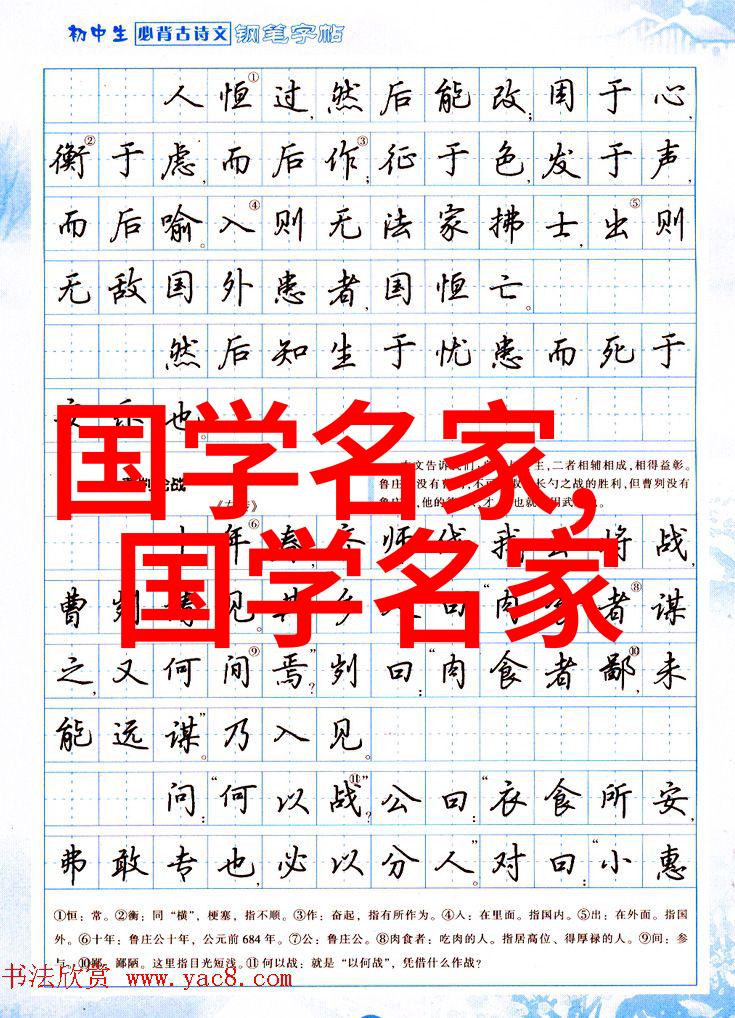 初中生 必背古诗文 钢笔字帖
人恒①过,然后能改;困于心,
衡②于虑,而后作③;征于色,发于声,
而后喻。入④则无法家拂士,出⑤则
无敌国外患者,国恒亡。
然后知生于忧患而死于
乐也
国学名家,
国学名家
论战
《左传》
本文告诉我们, 主,二者相辅相成,相得益彰。
鲁庄 没有曹 不可 长勺之战的胜利,但曹刿没有
鲁庄 他的 才 也就 用武
十年⑥春,齐师伐我,公将战,
曹刿请见。其乡人曰:“肉食者⑧谋
之,又何间⑨焉?”刿曰:“肉食者鄙⑩,未
能远谋。”乃入见。
问:“何以战⑪?”公曰:“衣食所安,
弗敢专也,必以分人。”对曰:“小惠
①恒:常。②衡:同“横”,梗塞,指不顺。③作:奋起,指有所作为。④入:在里面。指国内。⑤出:在外面。指国
外。⑥十年:鲁庄公十年,公元前684年。⑦公:鲁庄公。⑧肉食者:吃肉的人。指居高位、得厚禄的人。⑨间:参
与。⑩鄙:鄙陋。这里指目光短浅。⑪何以战:就是“以何战”,凭借什么作战?
书法欣赏 www.yac8.com